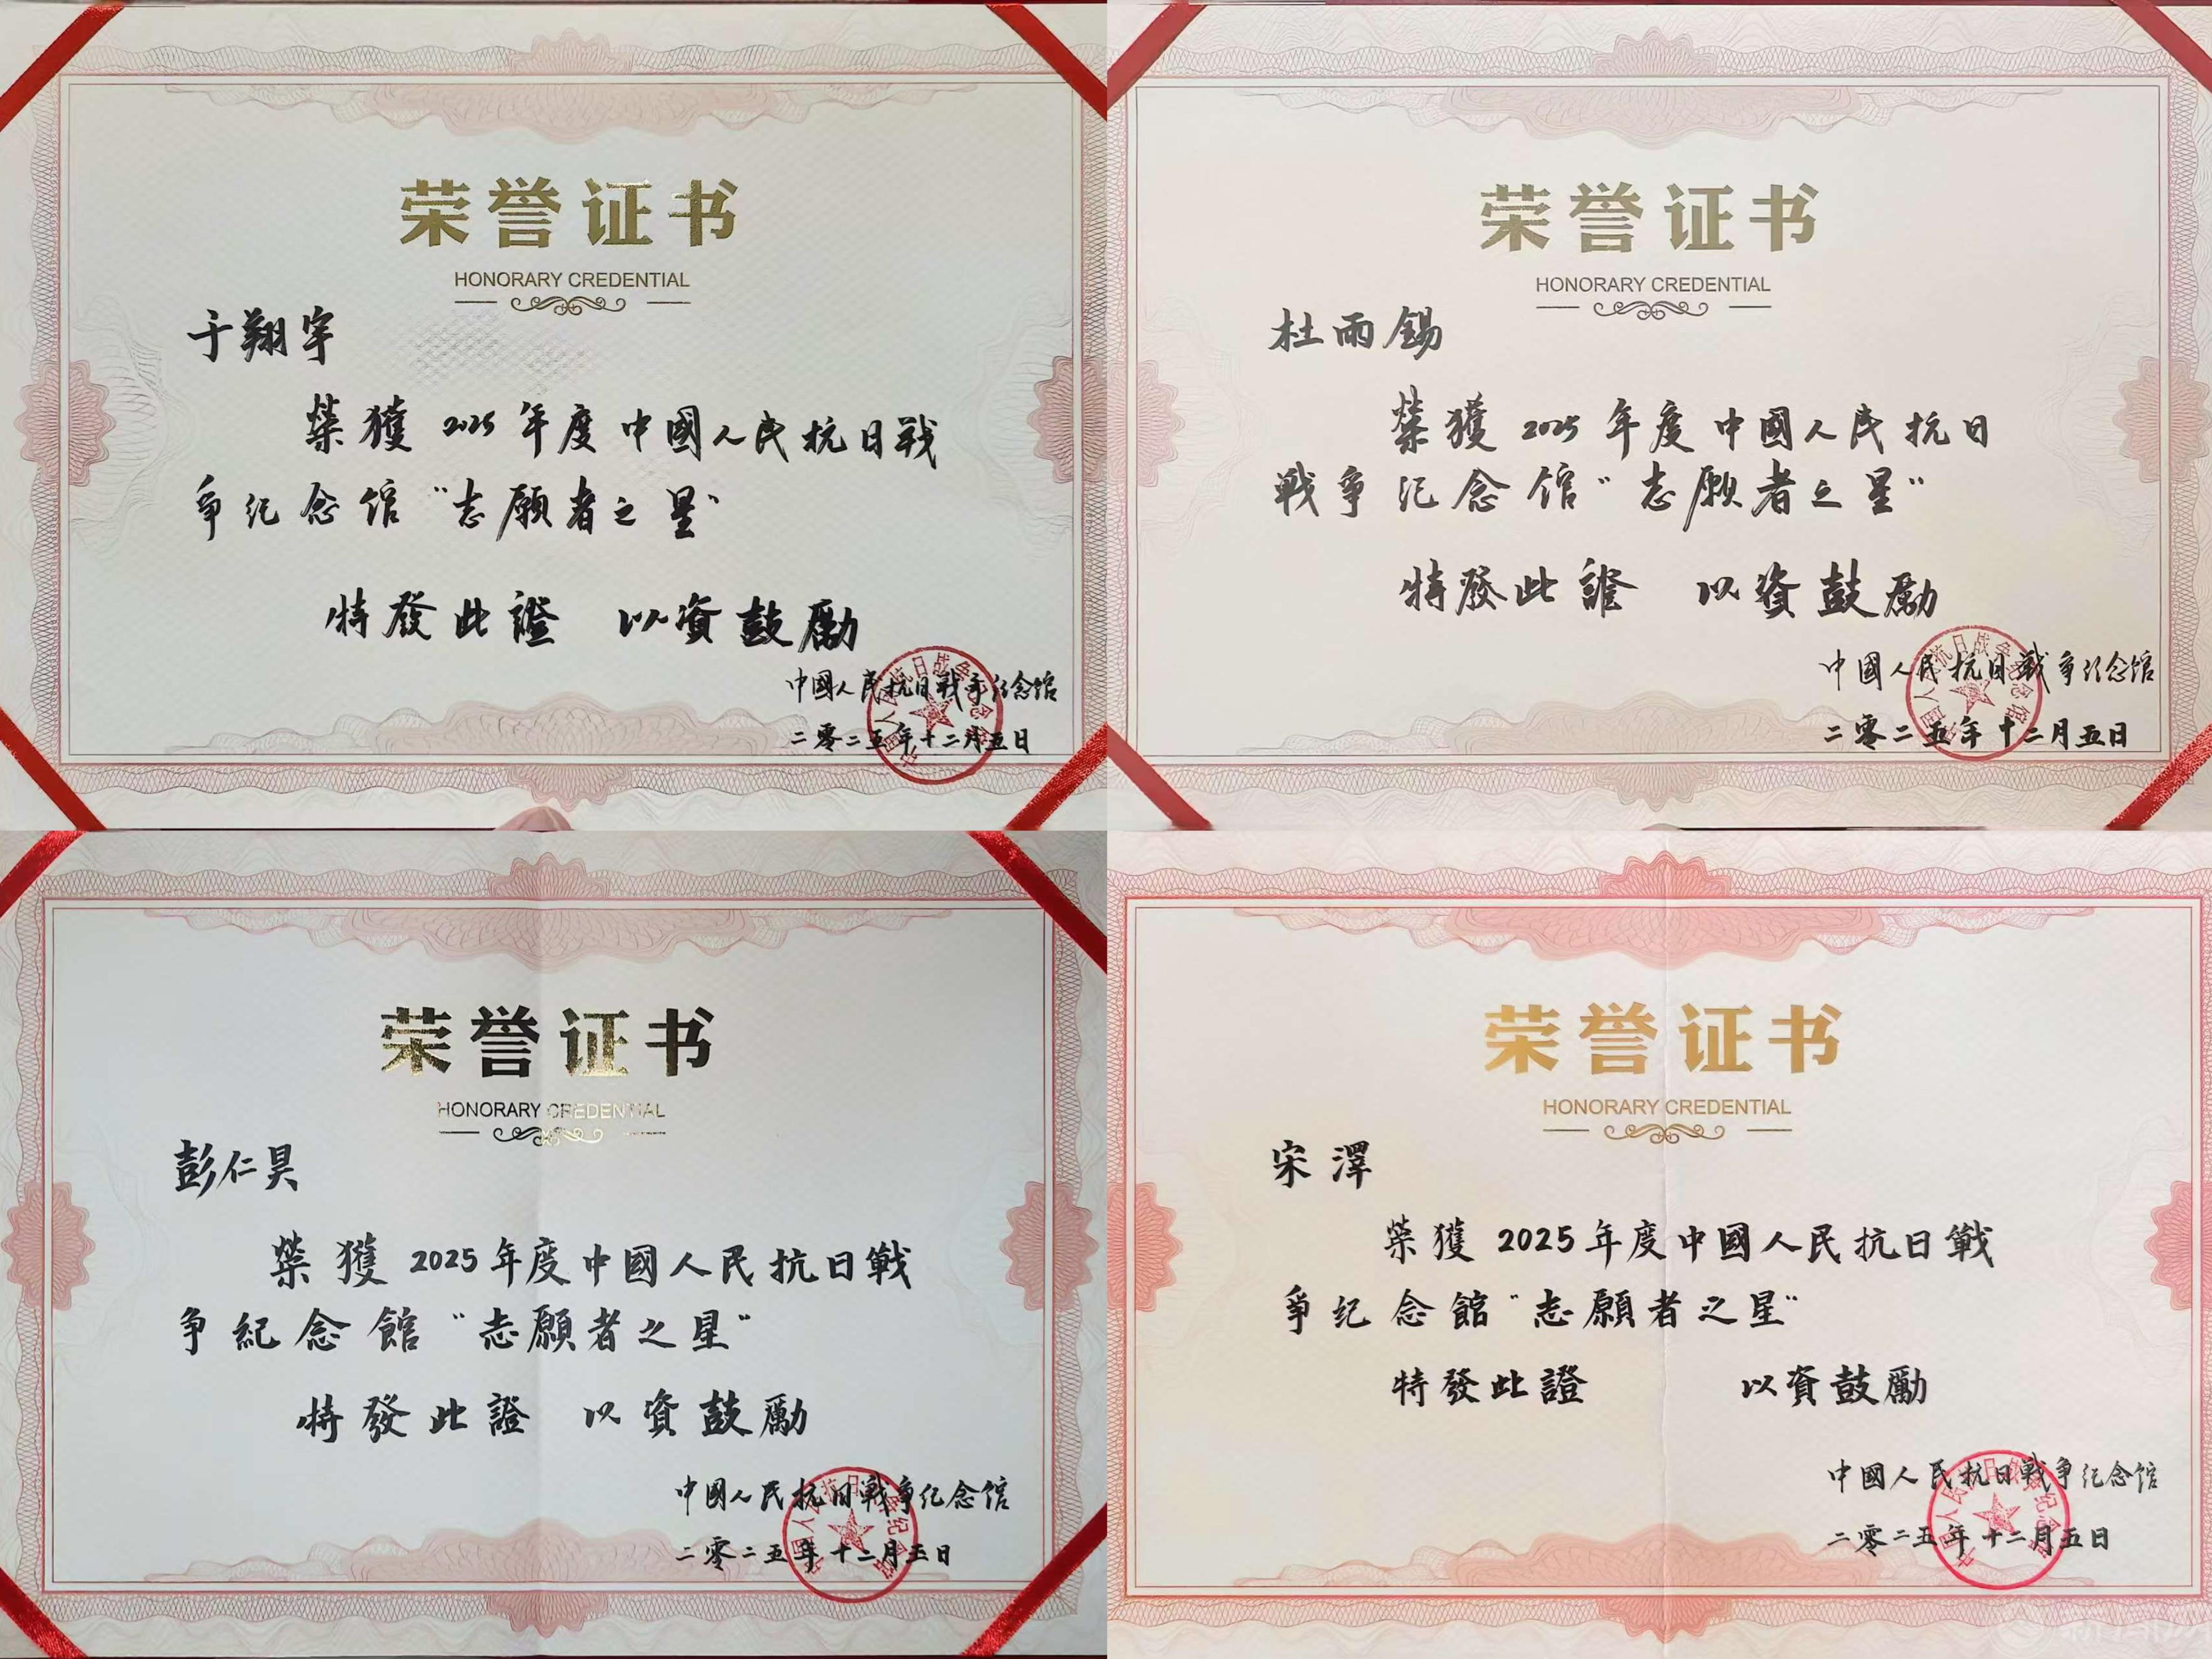 荣誉证书
HONORARY CREDENTIAL
于翔宇
榮獲2025年度中國人民抗日戰
爭纪念馆“志願者之星”
特發此證 以資鼓勵
中國人民抗日戰爭纪念馆
二零二五年十二月五日
荣誉证书
HONORARY CREDENTIAL
杜雨錫
榮獲2025年度中國人民抗日
戰爭纪念馆“志願者之星”
特發此證 以資鼓勵
中國人民抗日戰爭纪念馆
二零二五年十二月五日
荣誉证书
HONORARY CREDENTIAL
彭仁昊
榮獲2025年度中國人民抗日戰
爭紀念館“志願者之星”
特發此證 以資鼓勵
中國人民抗日戰爭纪念馆
二零二五年十二月五日
荣誉证书
HONORARY CREDENTIAL
宋澤
榮獲2025年度中國人民抗日戰
爭纪念館“志願者之星”
特發此證 以資鼓勵
中國人民抗日戰爭纪念馆
二零二五年十二月五日